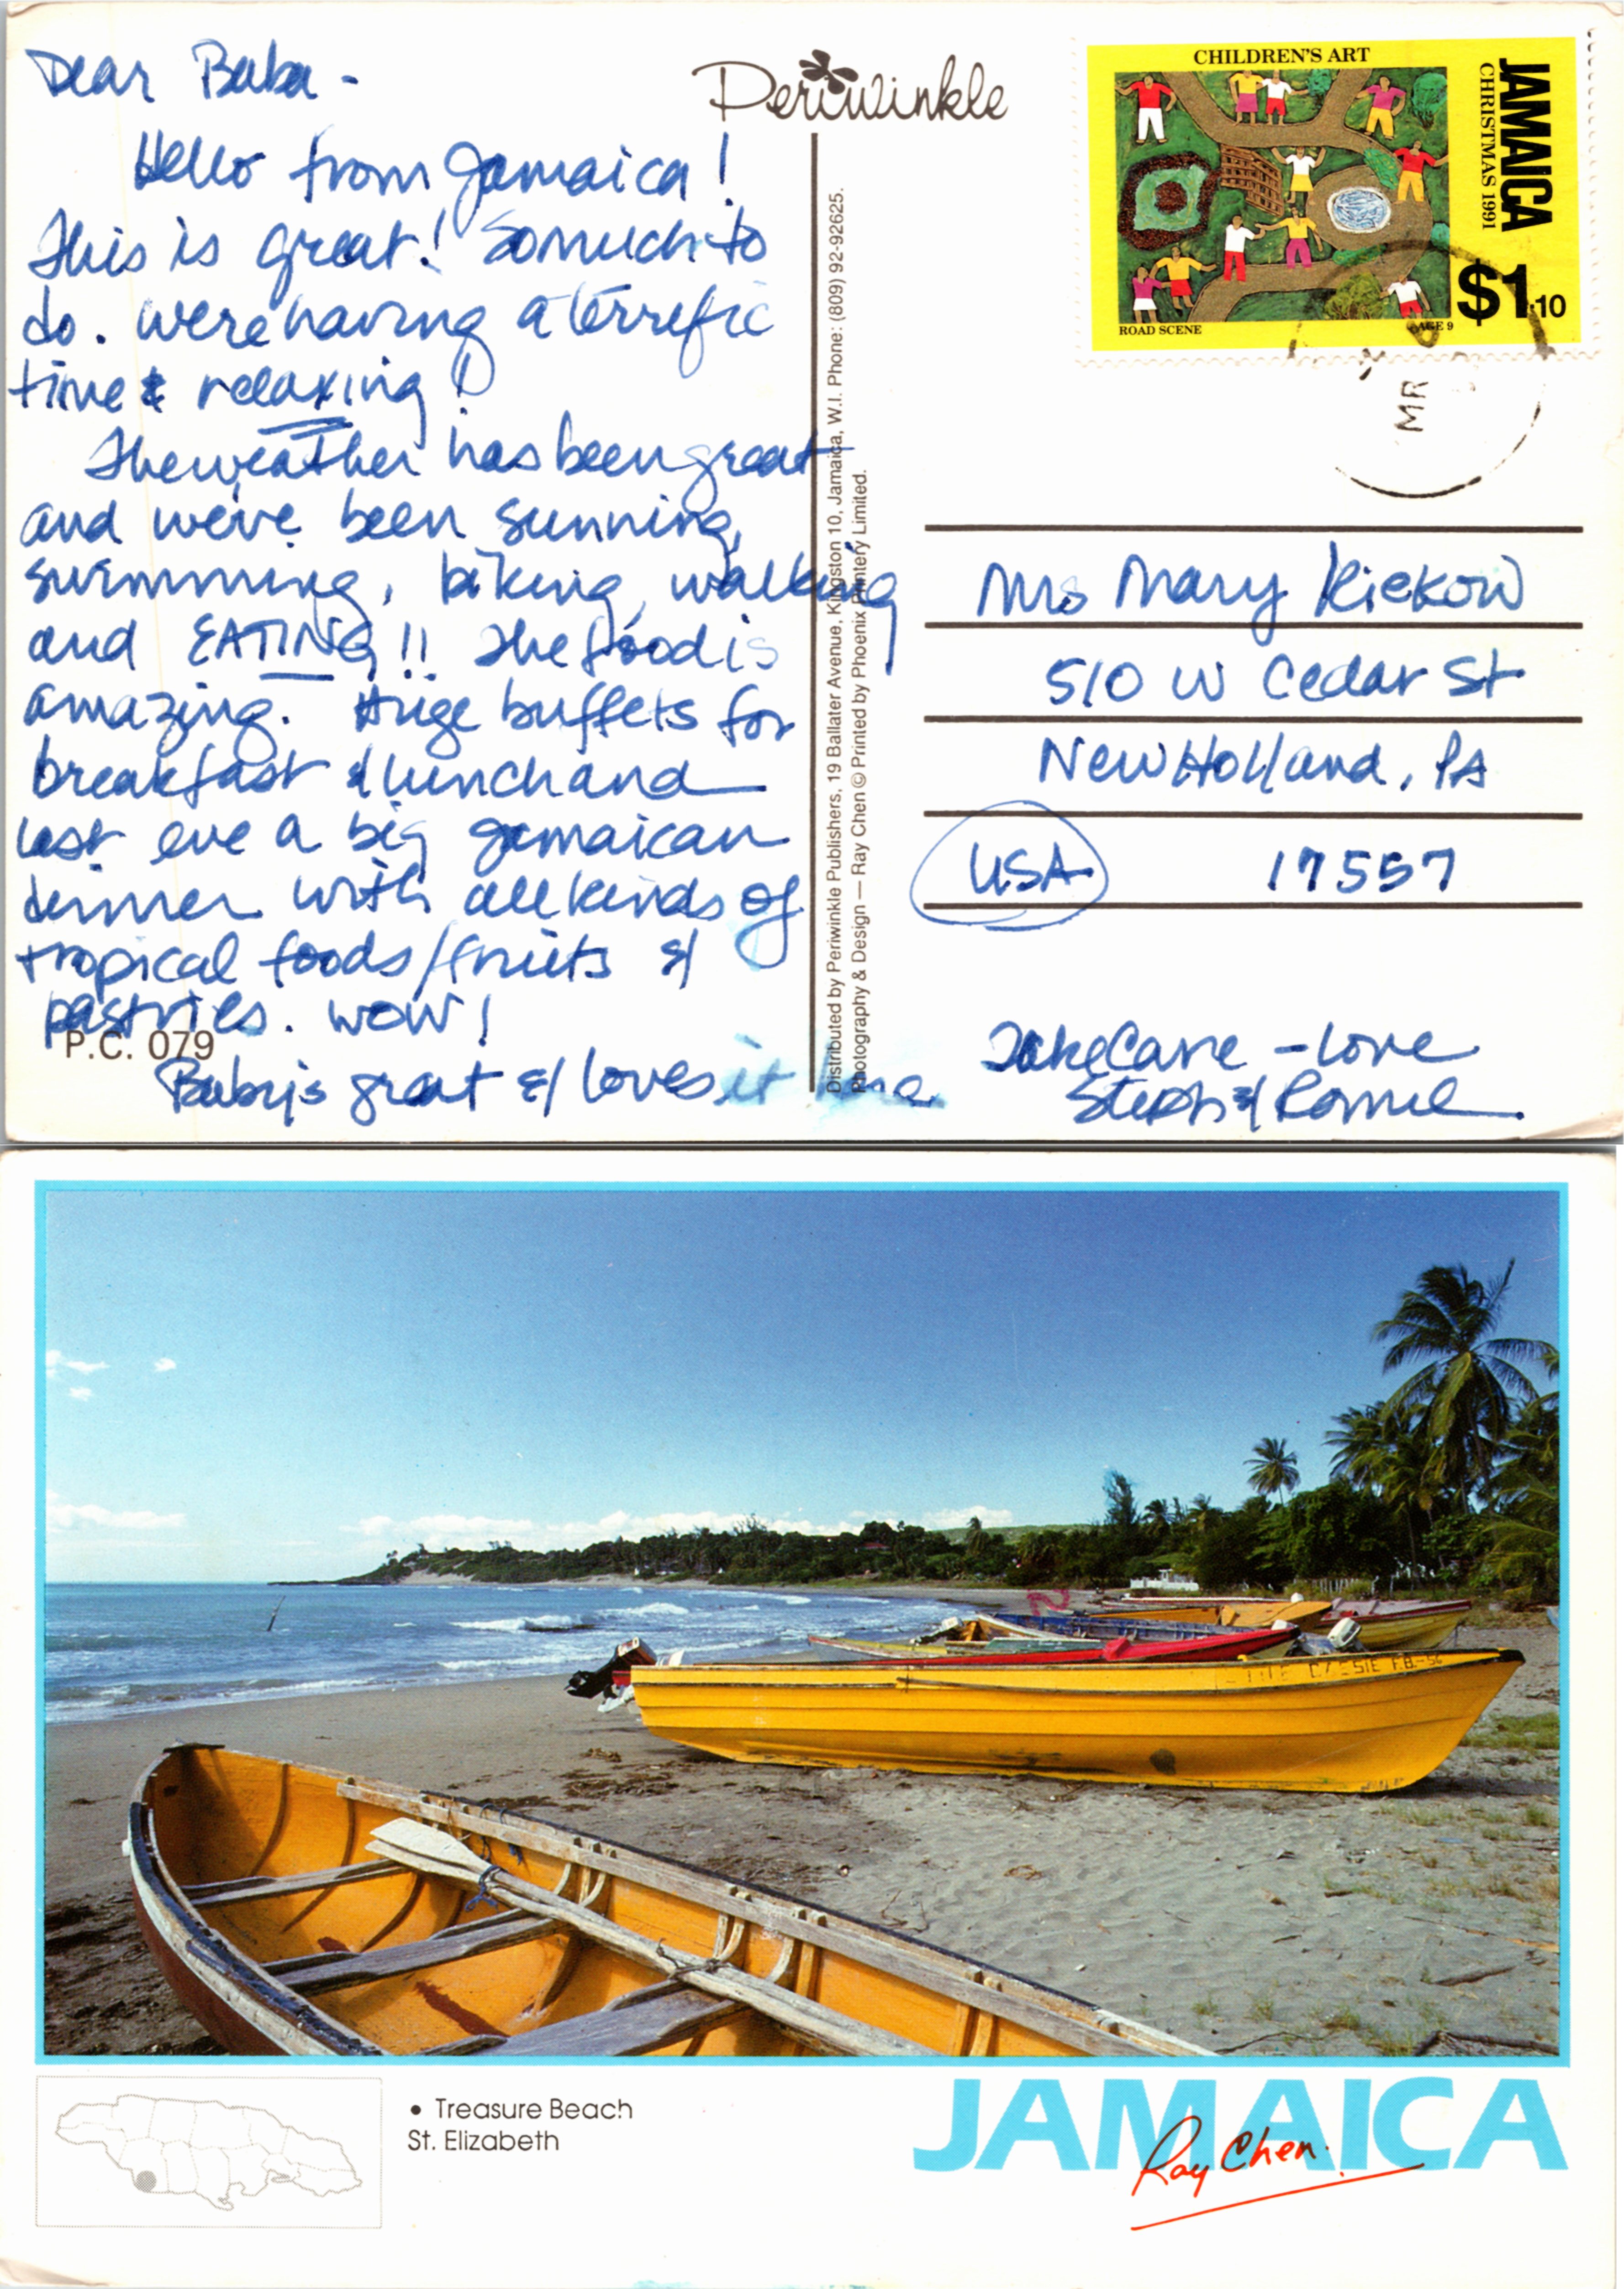 Dear Baba -
Hello from Jamaica!
This is great! So much to
do. We're having a terrific
time & relaxing!
The weather has been great
and we've been sunning,
swimming, biking, walking
and EATING!! The food is
amazing. Huge buffets for
breakfast & lunch and
last eve a big Jamaican
dinner with all kinds of
tropical foods/fruits &
pastries. WOW!
P.C. 079
Baby's great & loves it here
Periwinkle
Distributed by Periwinkle Publishers, 19 Ballater Avenue, Kingston 10, Jamaica, W.I. Phone: (809) 92-92625.
Photography & Design — Ray Chen © Printed by Phoenix Printery Limited.
CHILDREN'S ART
JAMAICA
CHRISTMAS 1991
$1.10
ROAD SCENE
AGE 9
MR
Mrs Mary Kiekow
510 W Cedar St
New Holland, PA
USA 17557
Take Care - love
Steph & Ronnie
F.B.-56
• Treasure Beach
St. Elizabeth
JAMAICA
Ray Chen